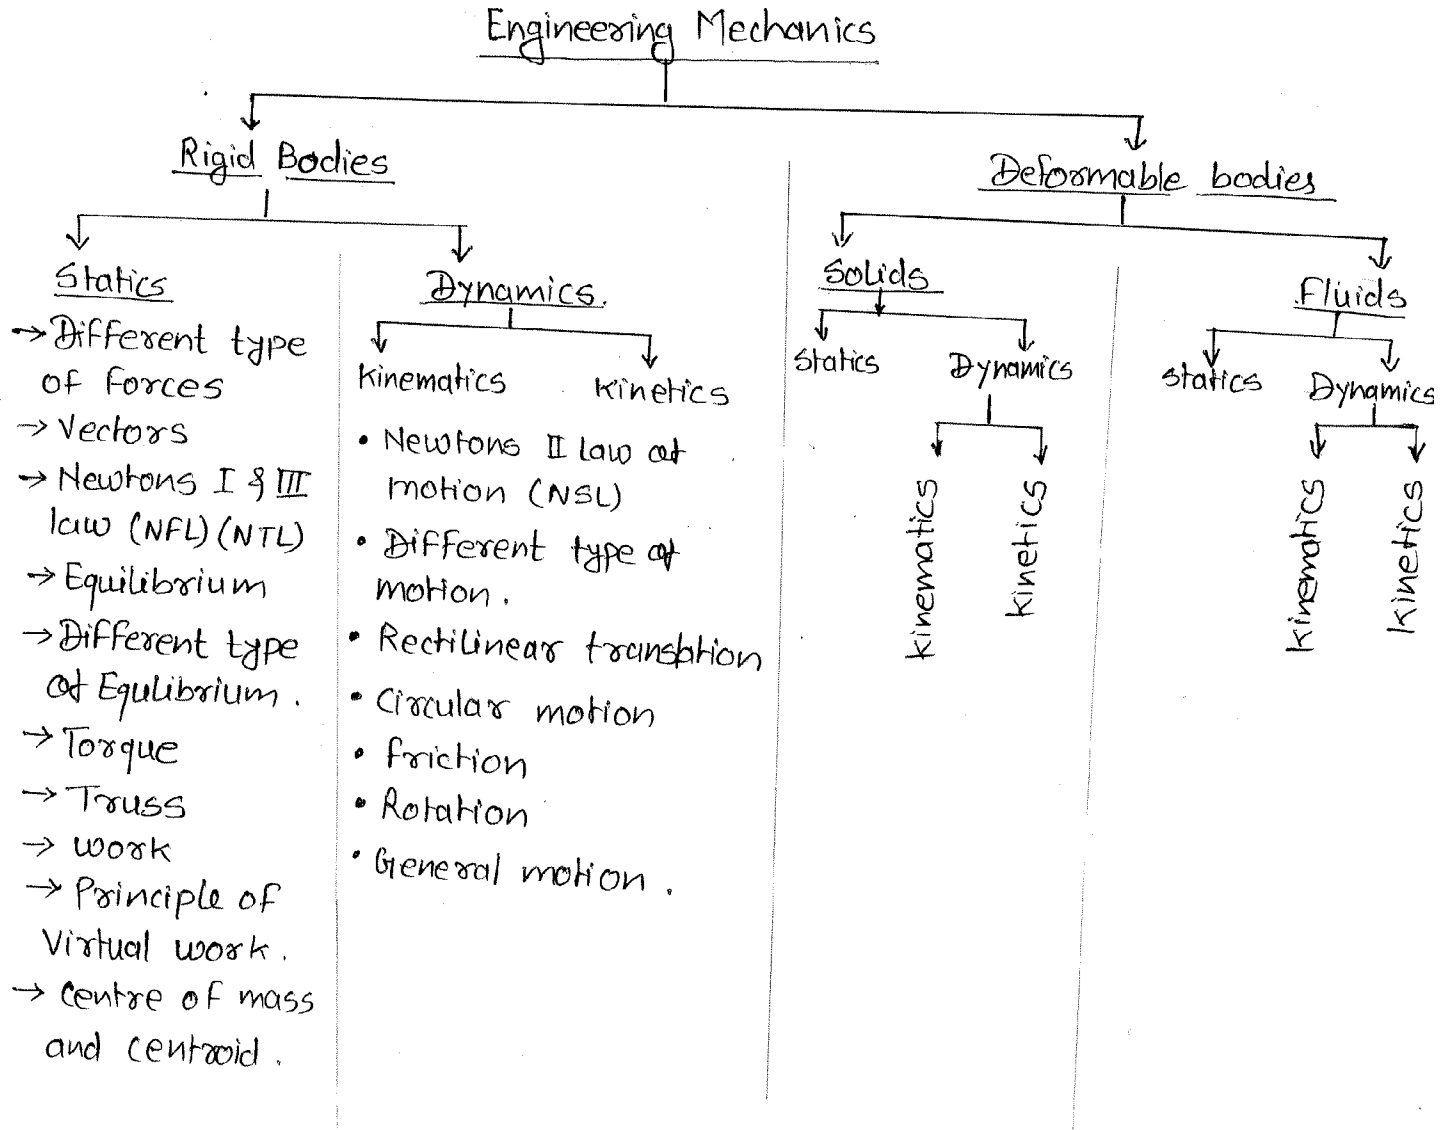 Engineering Mechanics
Rigid Bodies
Deformable bodies
Statics
→ Different type
of forces
→ Vectors
→ Newtons I & III
law (NFL) (NTL)
→ Equilibrium
→ Different type
of Equlibrium.
→ Torque
→ Truss
→ work
→ Principle of
Virtual work.
→ Centre of mass
and centroid.
Dynamics.
Kinematics
Kinetics
• Newtons II law of
motion (NSL)
• Different type of
motion.
• Rectilinear translation
• Circular motion
• friction
• Rotation
• General motion.
Solids
Statics
Dynamics
kinematics
kinetics
Fluids
statics
Dynamics
kinematics
kinetics